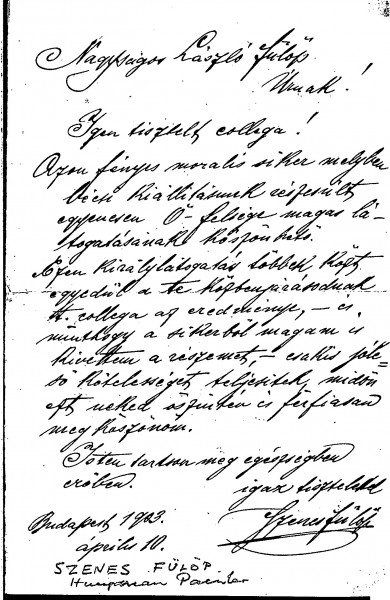 Nagyságos László Fülöp
Úrnak!
Igen tisztelt collega!
Azon fényes moralis siker melyben
bécsi kiállitásunk részesült
egyenesen Ő felsége magas lá-
togatásának köszönhető.
Ezen királylátogatás többek közt
egyedül a te közbenjárásodnak
t. collega az eredménye, – és
minthogy a sikerből magam is
kivettem a részemet, – csakis jóle-
ső kötelességet teljesitek, midőn
ezt neked őszintén és férfiasan
megköszönöm.
Isten tartson meg egészségben
erőben.
igaz tisztelettel
Szenes Fülöp
Budapest 1903.
április 10.
SZENES FÜLÖP
Hungarian Painter